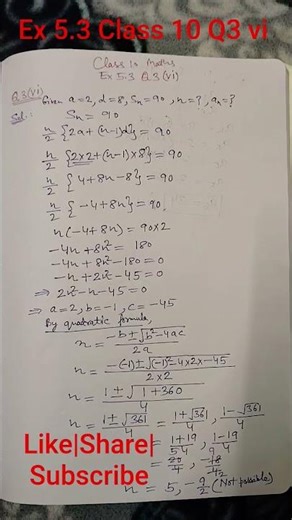 Ex 5.3 Class 10 Q3 vi
Class 10 Maths
Ex 5.3 Q.3(vi)
Q.3(vi) Given a=2, d=8, Sn=90, n=?, an=?
Sol:. Sn = 90
n/2 {2a+(n-1)d} = 90
n/2 {2×2+(n-1)×8} = 90
n/2 {4+8n-8} = 90
n/2 {-4+8n} = 90
n(-4+8n) = 90×2
-4n+8n² = 180
-4n+8n²-180=0
-n+2n²-45=0
⇒ 2n²-n-45=0
⇒ a=2, b=-1, c=-45
By quadratic formula,
n = -b±√b²-4ac / 2a
n = -(-1)±√(-1)²-4×2×-45 / 2×2
n = 1±√1+360 / 4
n = 1±√361 / 4 = 1+√361 / 4, 1-√361 / 4
= 1+19 / 4, 1-19 / 4
= 20/4, -18/4
5 9
2
n = 5, -9/2 (Not possible)
Like|Share|
Subscribe